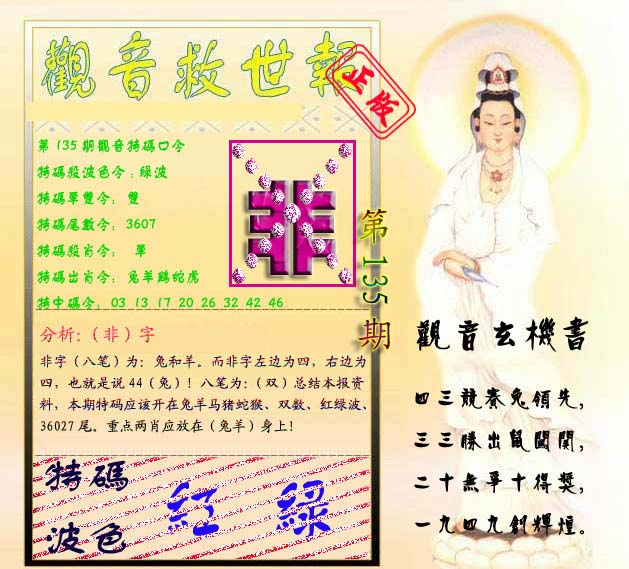 觀音救世報
正版
第135期觀音特碼口令
特碼殺波色令：綠波
特碼單雙令： 雙
特碼尾數令： 3607
特碼殺肖令： 單
特碼出肖令： 兔羊鷄蛇虎
特中碼令： 03 13 17 20 26 32 42 46
非
第135期
分析：（非）字
非字（八笔）为：兔和羊。而非字左边为四，右边为
四，也就是说44（兔）！八笔为：（双）总结本报资
料，本期特码应该开在兔羊马猪蛇猴、双数、红绿波、
36027尾。重点两肖应放在（兔羊）身上！
特碼
波色
紅 綠
觀音玄機書
四三競賽兔領先，
三三勝出鼠闖關，
二十無爭十得獎，
一九四九創輝煌。